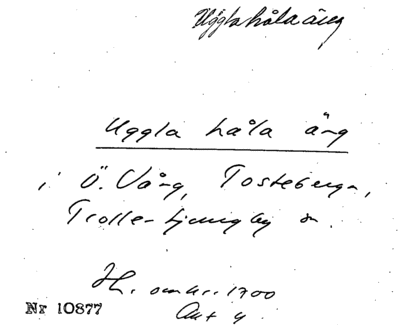 Uggla håla äng
Uggla håla äng
i Ö. Vång, Tosteberga,
Trolle-Ljungby sn.
omkr. 1700
Akt 4
Nr 10877